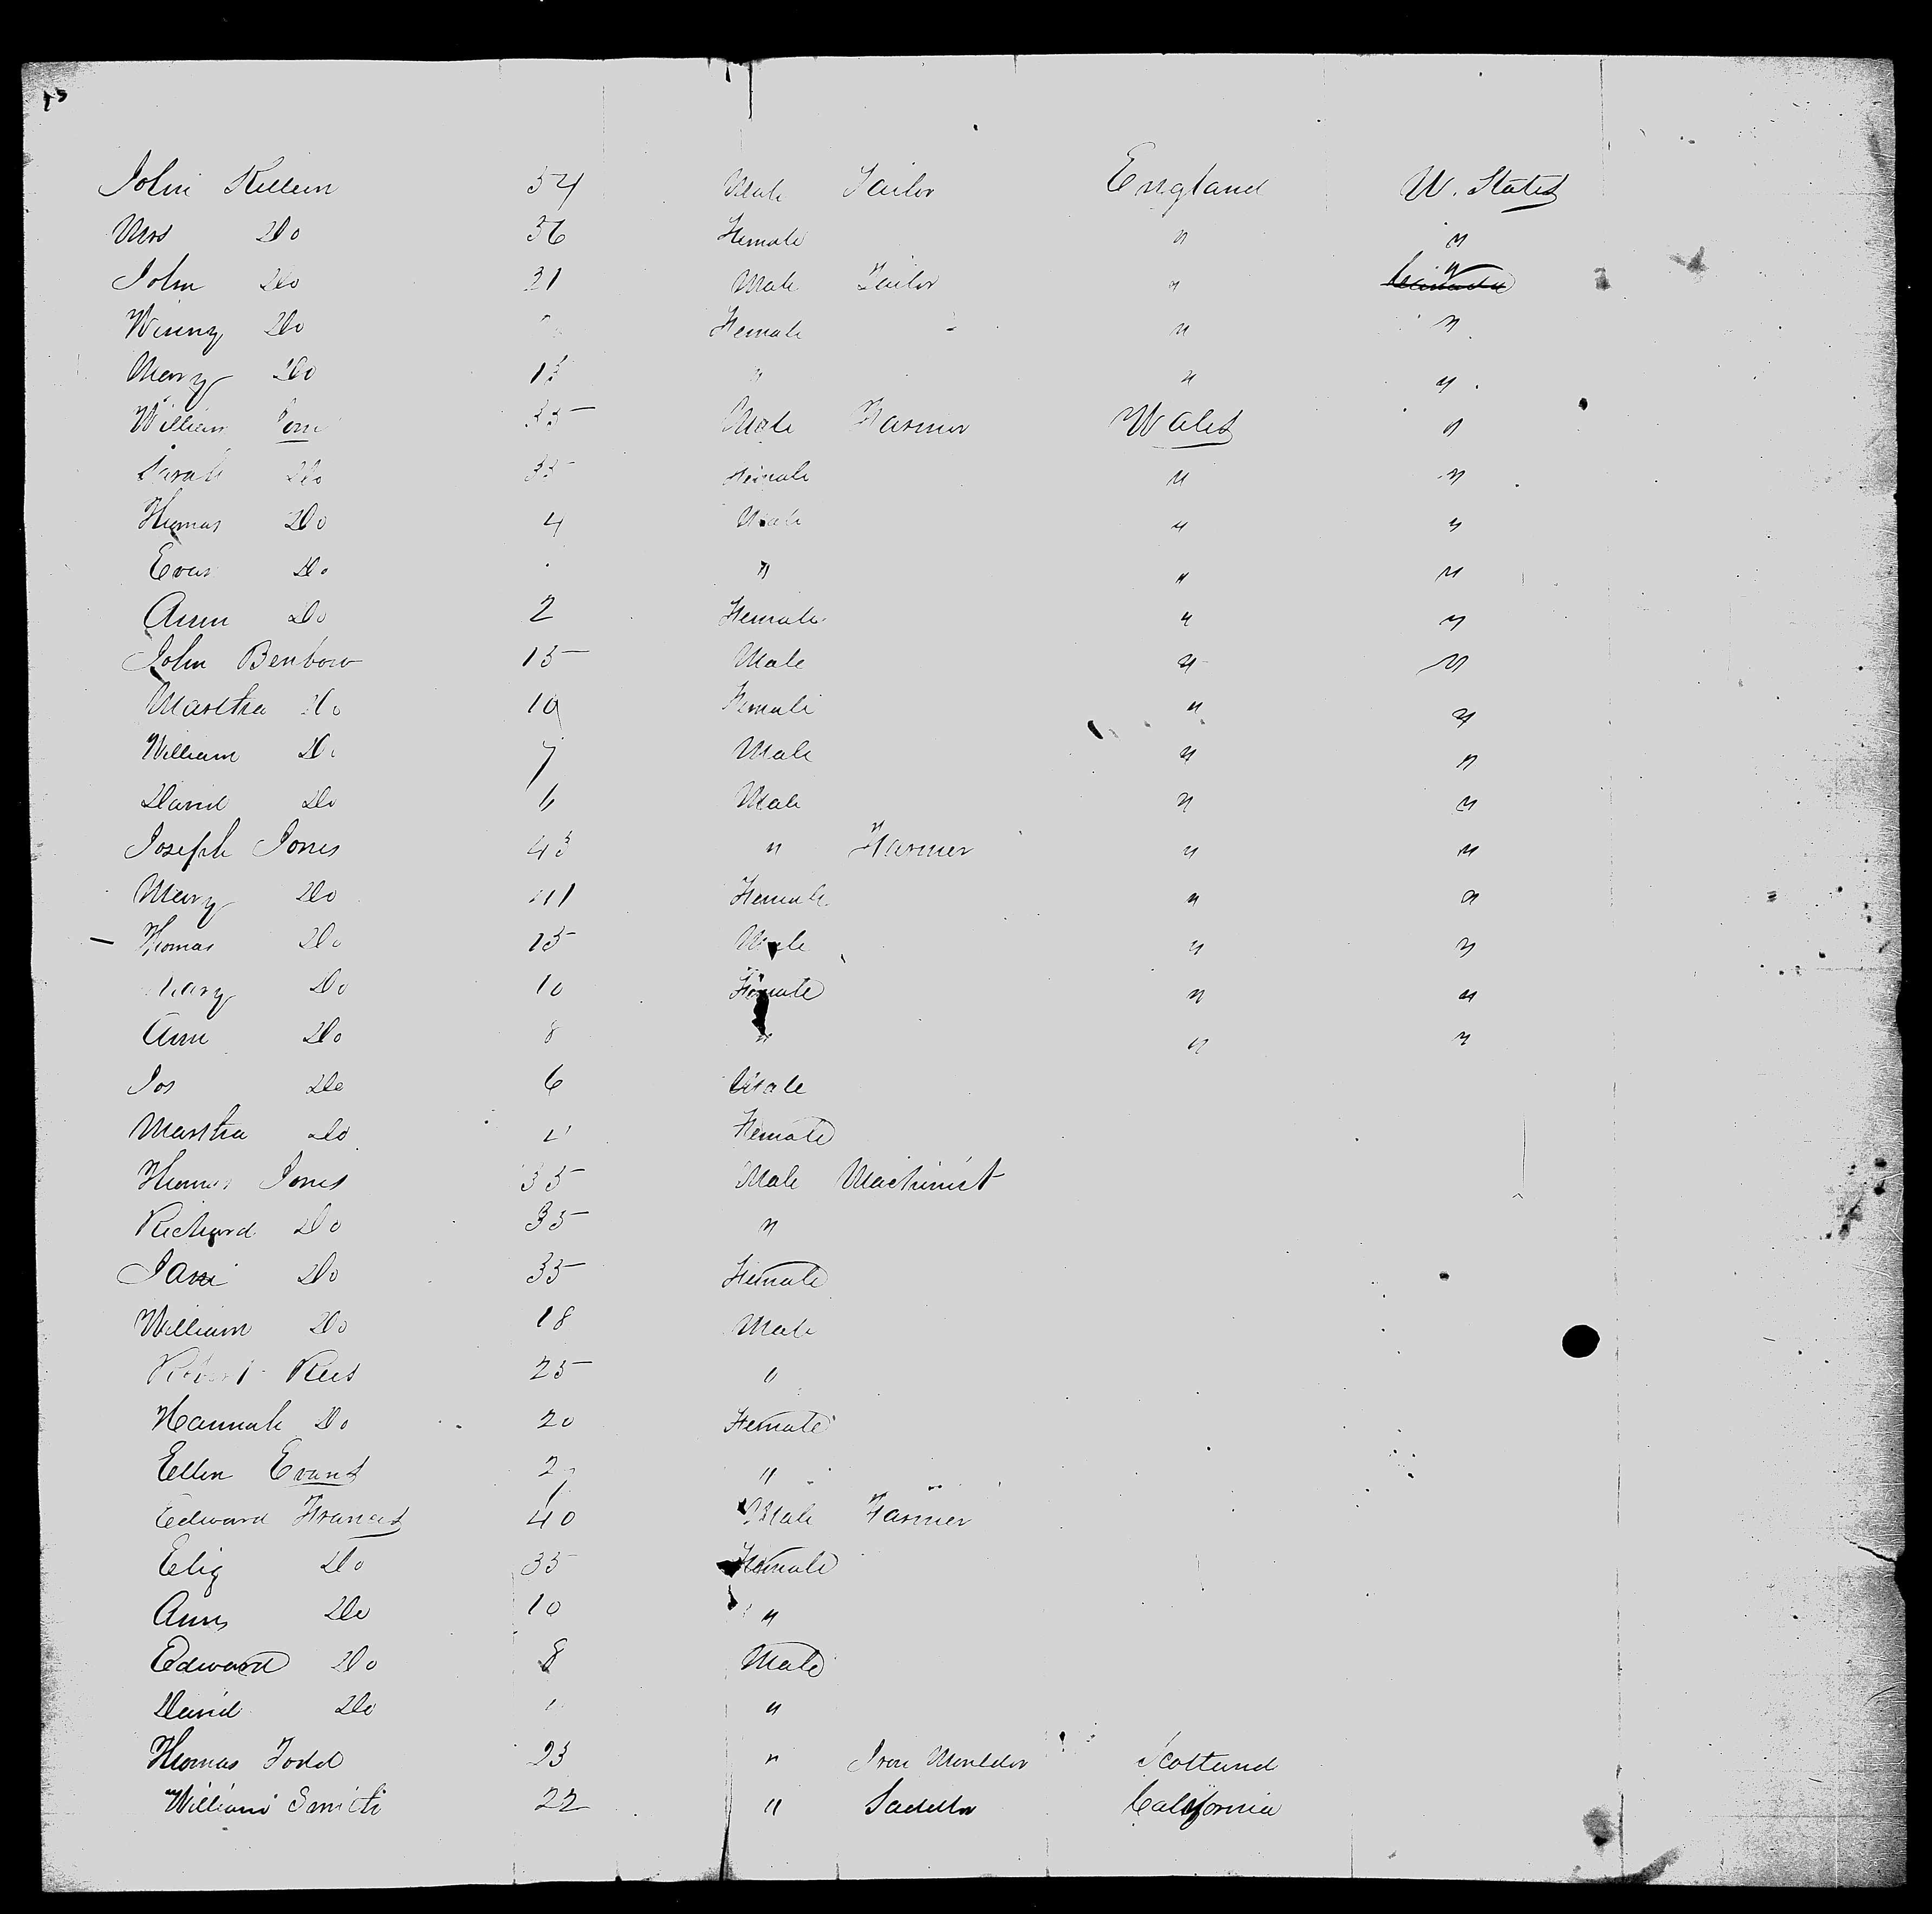 John Killein 54 Male Tailor England U. States
Mrs Do 36 Female " "
John Do 21 Male Tailor " "
Winny Do Female " "
Mary Do 13 " " "
William 35 Male Farmer Wales "
Sarah Do 35 Female " "
Thomas Do 4 Male " "
Evan Do " " "
Ann Do 2 Female " "
John Benbow 15 Male " "
Martha Do 10 Female " "
William Do 7 Male " "
David Do 6 Male " "
Joseph Jones 43 " Farmer " "
Mary Do 41 Female " "
Thomas Do 15 Male " "
Mary Do 10 Female " "
Ann Do 8 " " "
Jos Do 6 Male
Martha Do Female
Thomas Jones 35 Male Machinist
Richard Do 35 "
Jane Do 35 Female
William Do 18 Male
Robert Rees 25 "
Hannah Do 20 Female
Ellen Evans "
Edward Francis 40 Male Farmer
Eliz Do 35 Female
Ann Do 10 "
Edward Do 8 Male
David Do "
Thomas Todd 23 " Iron Moulder Scotland
William Smith 22 " Saddler California